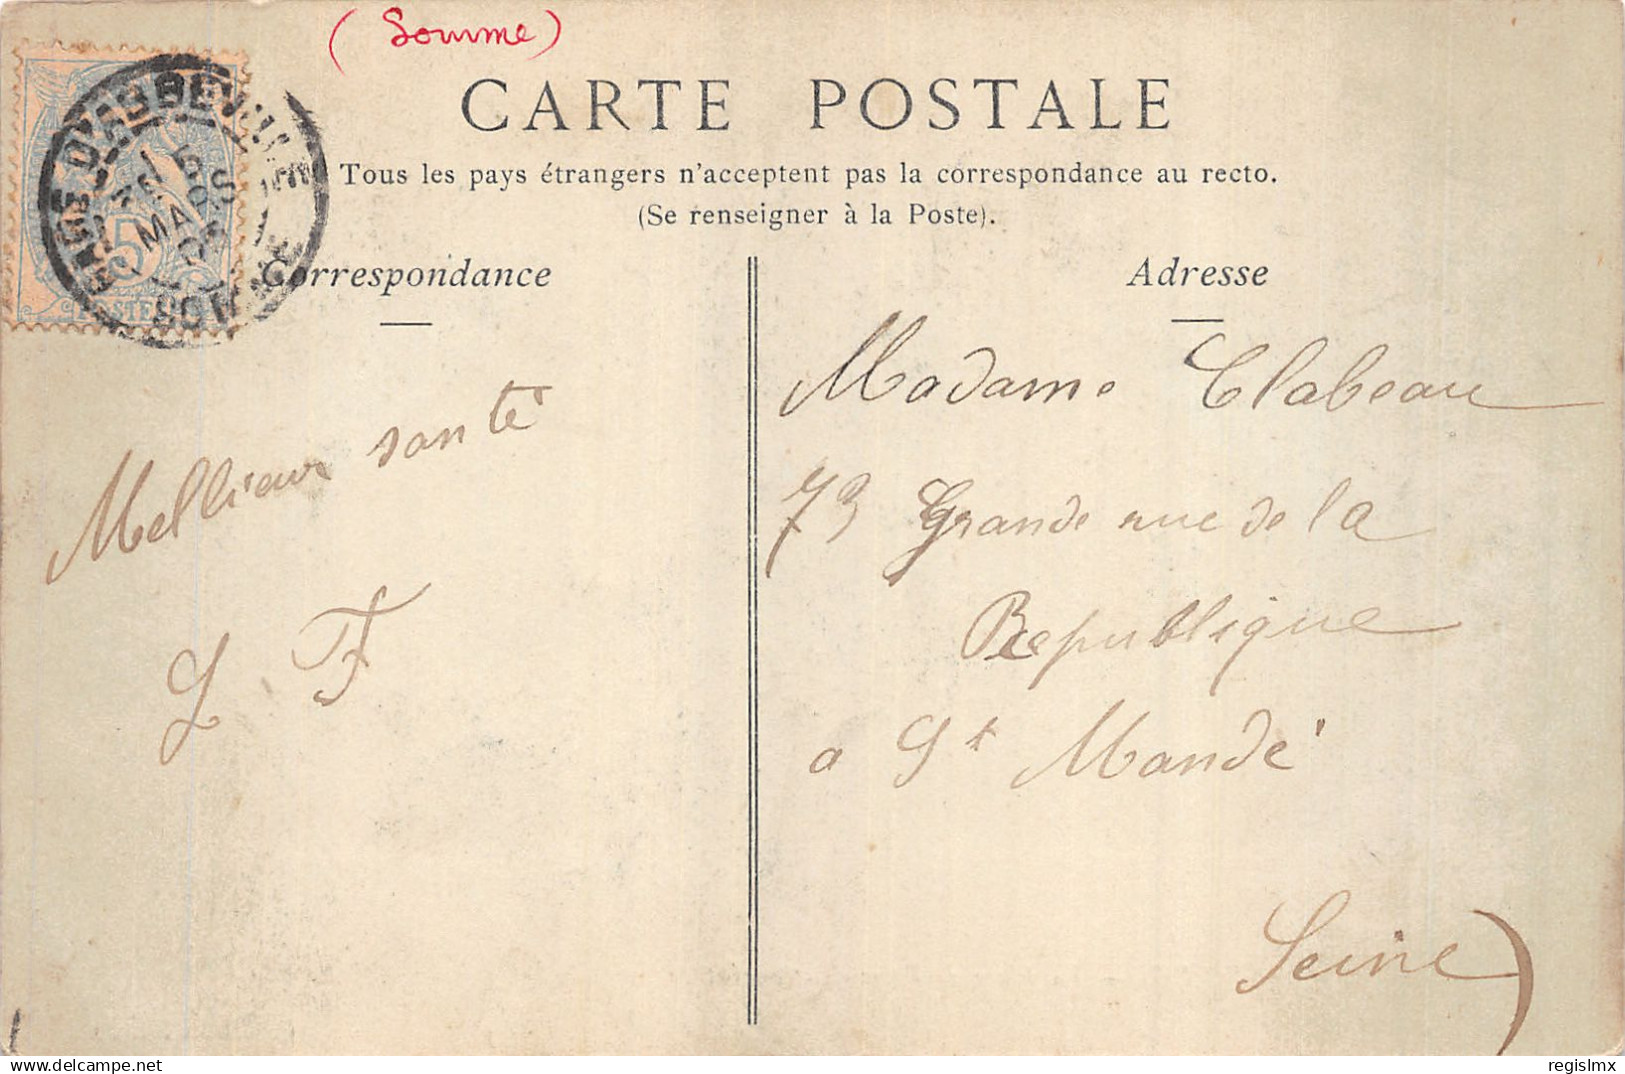 (Somme)
CARTE POSTALE
Tous les pays étrangers n'acceptent pas la correspondance au recto.
(Se renseigner à la Poste).
GARE D'ABBEVILLE
5
MARS
SOMME
5
POSTES
Correspondance
Mellieur santé
L F
Adresse
Madame Clabeau
73 Grande rue de la
Republique
a St Mandé
Seine)
delcampe.net
regislmx